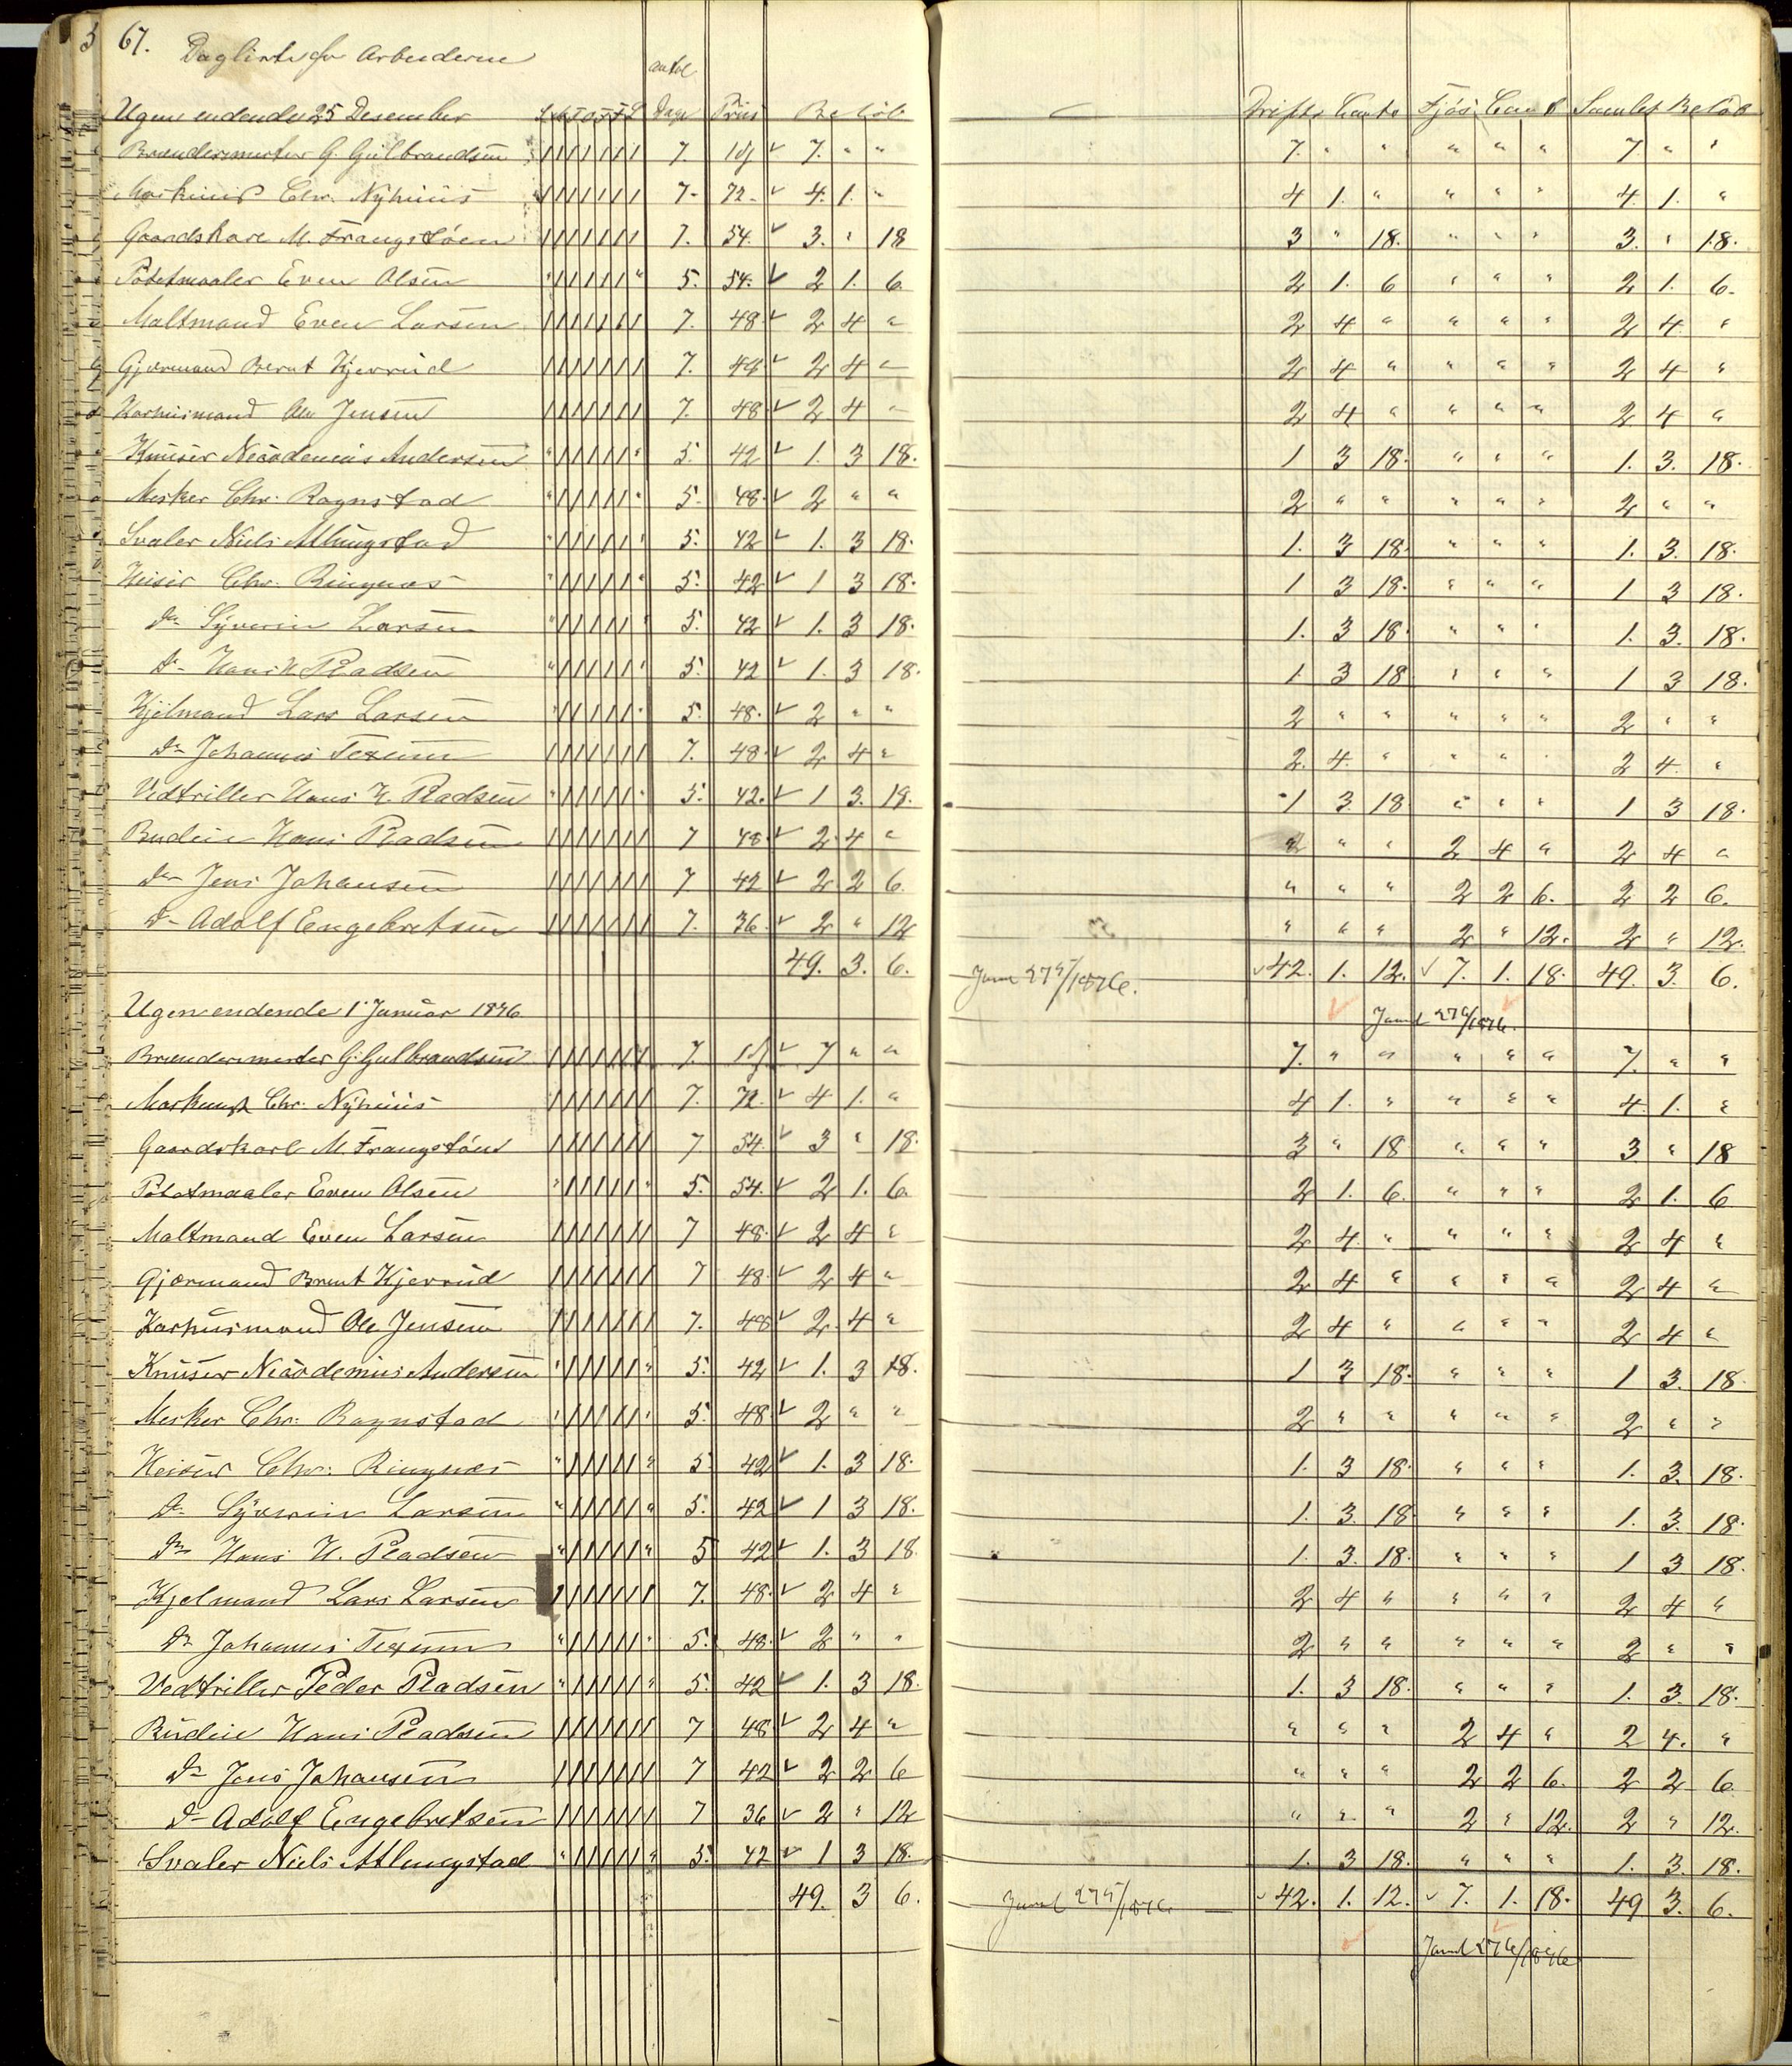 67. Daglister for Arbeiderne
antal
Ugen endende 25 Desember S M T O T F L Dage Priis Beløb Drifts Conto Fjøs Conto Samlet Beløb
Brændermester G. Gulbrandsen 7. 1 7. " " 7. " " " " " 7. " "
Maskinist Chr. Nyhuus 7. 72. 4. 1. " 4 1. " " " " 4. 1. "
Gaardskarl M. Frangstøen 7. 54. 3. " 18 3 " 18. " " " 3. " 18.
Potetmaaler Even Olsen 5. 54. 2 1. 6. 2 1. 6 " " " 2 1. 6.
Maltmand Even Larsen 7. 48. 2 4 " 2 4 " " " " 2 4. "
Gjærmand Bernt Kjerrud 7. 48 2 4 " 2 4 " " " " 2 4 "
Karhusmand Ole Jensen 7. 48 2 4 " 2 4 " " " " 2 4 "
Knuser Nicodemus Andersen 5. 42 1. 3 18. 1 3 18. " " " 1. 3. 18.
Mesker Chr. Rognstad 5. 48. 2 " " 2 " " " " " 2 " "
Svaler Niels Allungstad 5. 42 1. 3 18. 1. 3 18. " " " 1. 3. 18.
Heiser Chr. Ringnæs 5. 42 1 3 18. 1 3 18. " " " 1 3 18.
Do Syverin Larsen 5. 42 1. 3 18. 1. 3 18. " " " 1. 3. 18.
Do Hans H. Pladsen 5. 42 1. 3 18. 1. 3 18 " " " 1 3 18.
Kjelmand Lars Larsen 5. 48. 2 " " 2 " " " " " 2 " "
Do Johannes Texum 7. 48. 2 4 " 2. 4. " " " " 2 4. "
Vedtriller Hans H. Pladsen 5. 42. 1 3. 18. 1 3 18 " " " 1 3 18.
Budeie Hans Pladsen 7 48. 2. 4 " " " 2 4 " 2 4 "
Do Jens Johansen 7 42 2 2 6. " " " 2 2 6. 2 2 6.
Do Adolf Engebretsen 7. 36. 2 " 12 " " " 2 " 12. 2 " 12.
49. 3. 6. Journl 275/1876. 42. 1. 12. 7. 1. 18. 49. 3. 6.
Ugen endende 1 Januar 1876 Journl 276/1876.
Brændermester G. Gulbrandsen 7. 1 7 " " 7. " " " " " 7. " "
Maskinist Chr. Nyhuus 7. 72. 4 1. " 4 1. " " " " 4. 1. "
Gaardskarl M. Frangstøen 7 54. 3 " 18. 3 " 18 " " " 3 " 18
Potetmaaler Even Olsen 5. 54. 2 1. 6. 2 1. 6. " " " 2 1. 6
Maltmand Even Larsen 7 48. 2 4 " 2 4. " " " " 2 4 "
Gjærmand Brent Kjerrud 7 48. 2 4 " 2 4 " " " " 2 4 "
Karhusmand Ole Jensen 7. 48 2. 4 " 2 4 " " " " 2 4 "
Knuser Nicodemus Andersen 5. 42 1. 3 18. 1 3 18. " " " 1 3. 18.
Mesker Chr. Rognstad 5. 48 2 " " 2 " " " " " 2 " "
Heiser Chr. Ringnæs 5 42 1. 3 18. 1. 3 18. " " " 1. 3. 18.
Do Syverin Larsen 5. 42 1 3 18. 1. 3. 18 " " " 1. 3. 18.
Do Hans H. Pladsen 5 42 1. 3 18. 1. 3. 18. " " " 1 3 18.
Kjelmand Lars Larsen 7. 48. 2 4 " 2 4 " " " " 2 4 "
Do Johannes Texum 5. 48. 2 " " 2 " " " " " 2 " "
Vedtriller Peder Pladsen 5. 42 1. 3 18. 1. 3 18. " " " 1. 3. 18.
Budeie Hans Pladsen 7 48 2 4 " " " " 2 4 " 2 4. "
Do Jens Johansen 7 42 2 2 6 " " " 2 2 6. 2 2 6.
Do Adolf Engebretsen 7 36 2 " 12 " " " 2 " 12. 2 " 12.
Svaler Niels Allungstad 5. 42 1 3 18. 1. 3 18. " " " 1. 3. 18.
49. 3 6. Journl 275/1876 42. 1. 12. 7. 1. 18. 49 3. 6.
Journl 276/1876